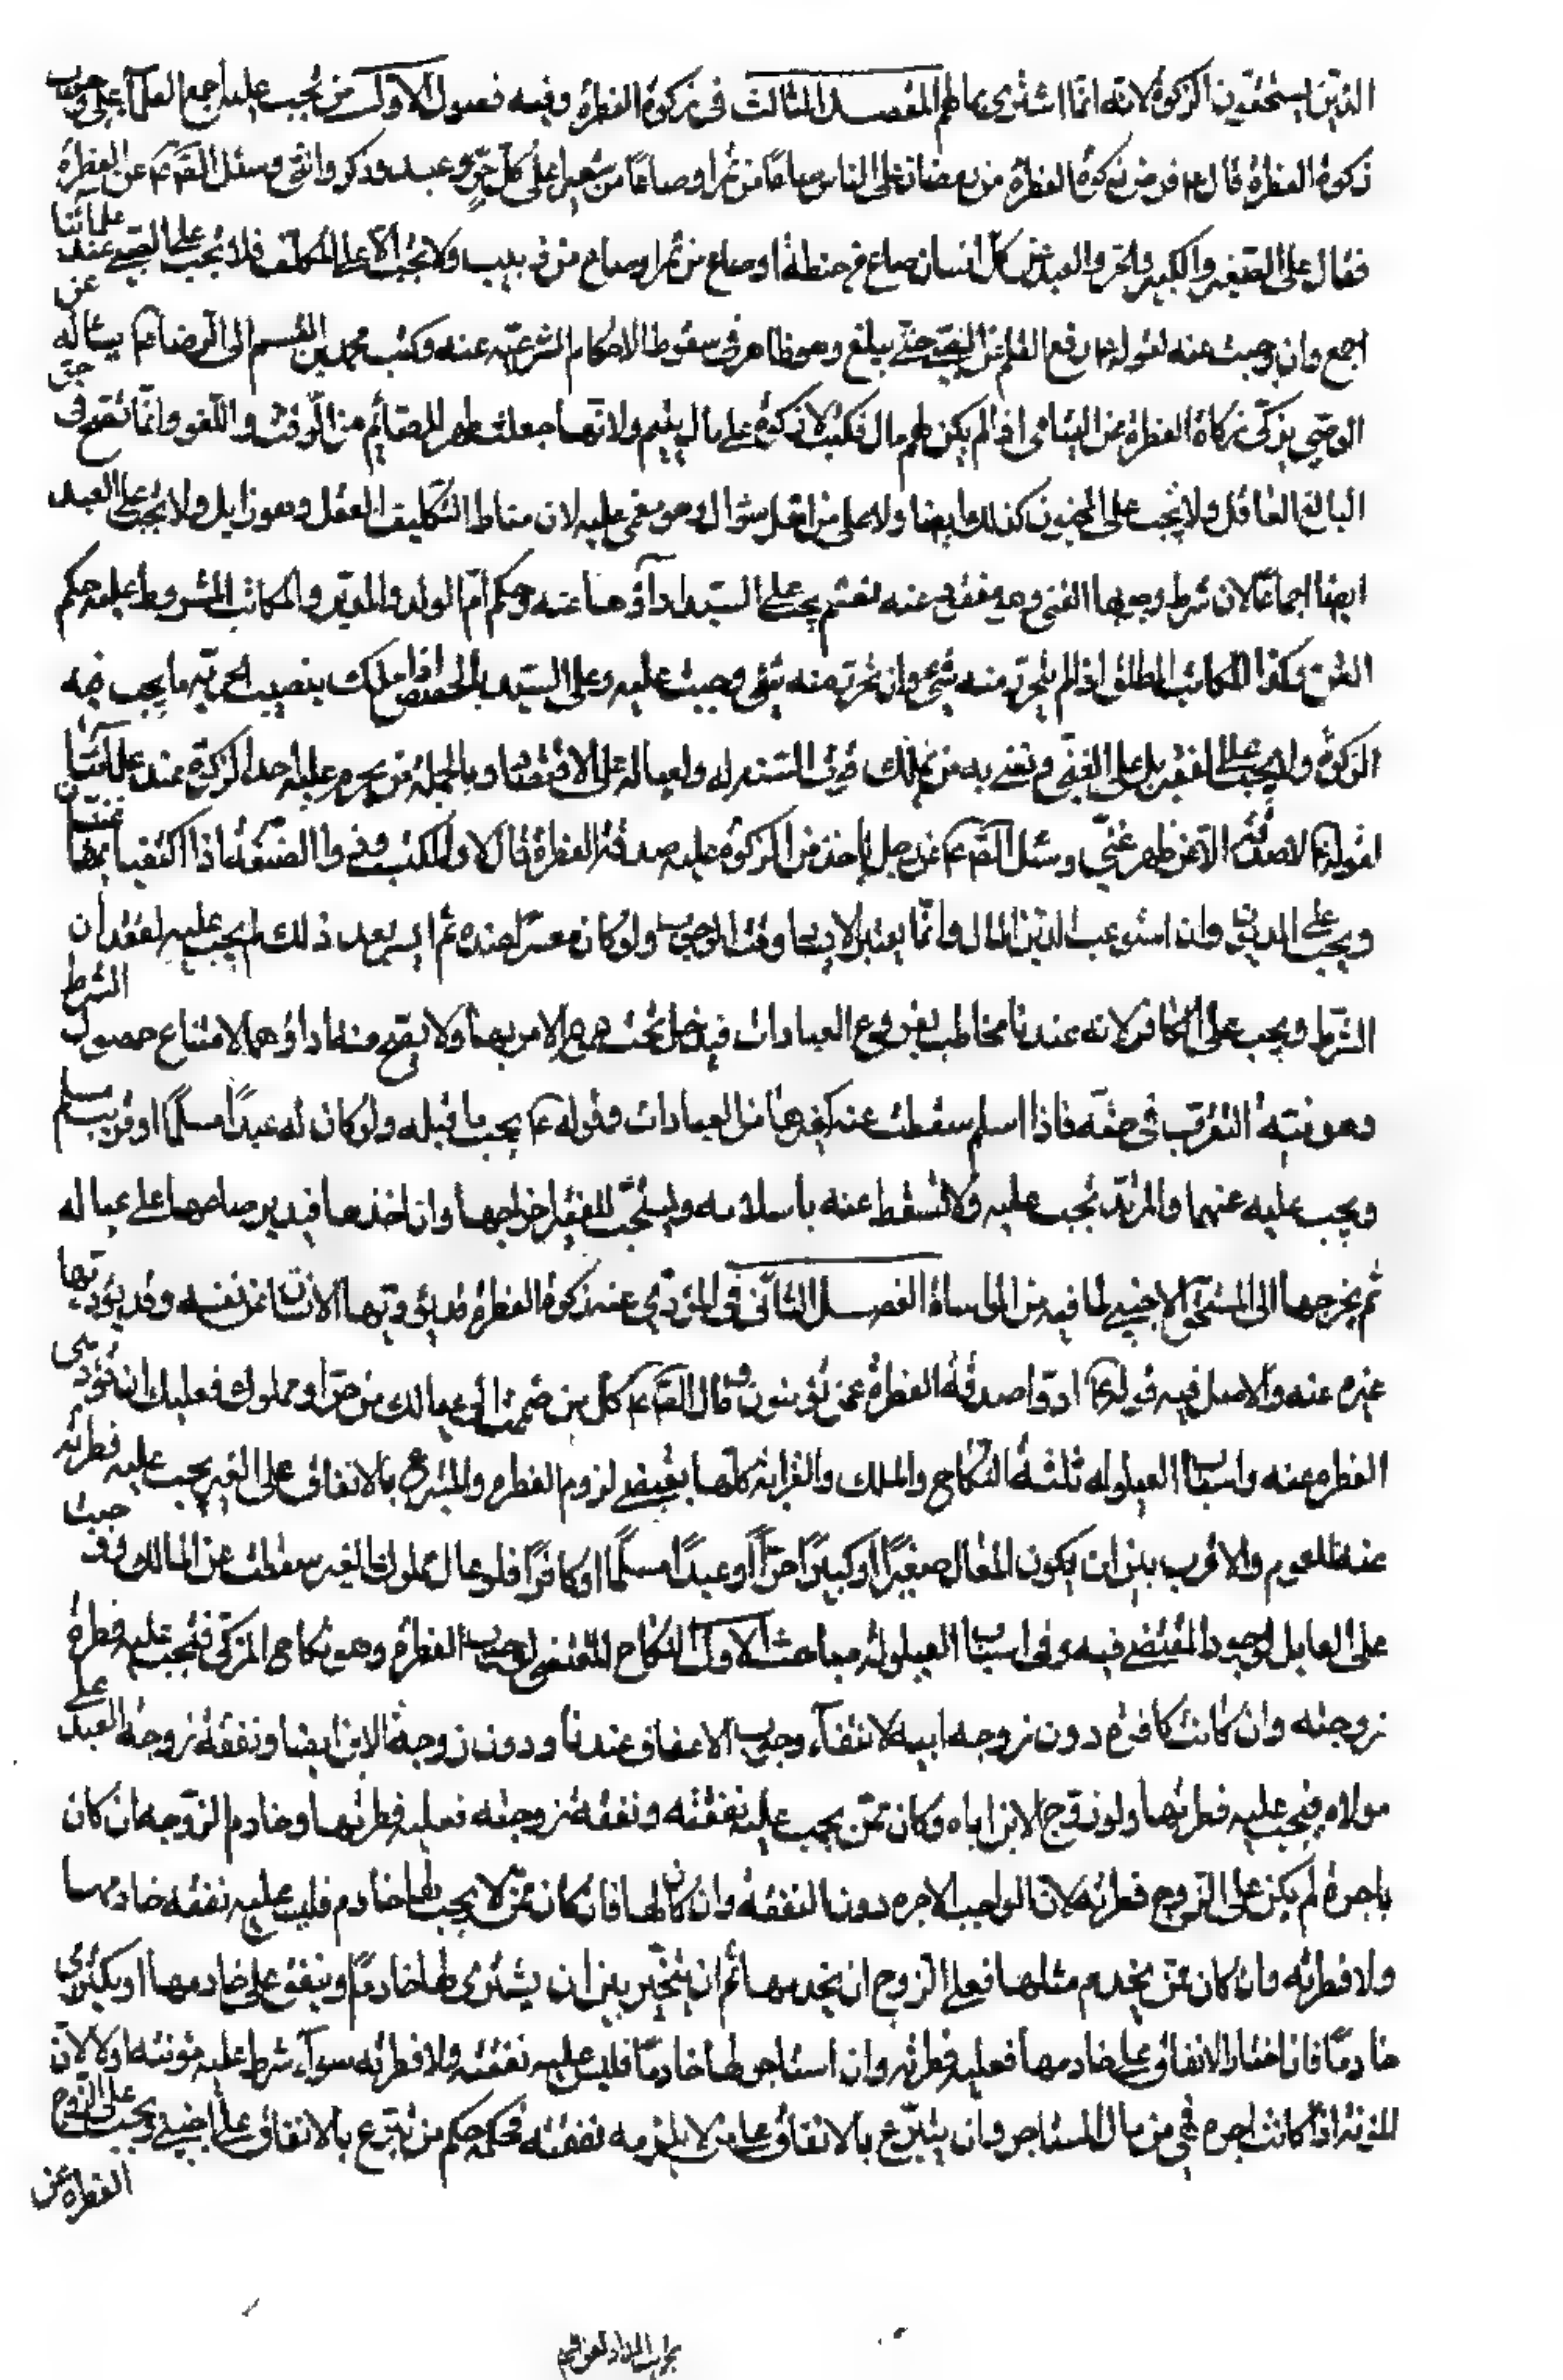 الذين يستحقون الزكوة لانه انما اشترى بمالهم المقصـــد الثالث فى زكوة الفطرة وفيه فصول الاول من تجب عليه اجمع العلماء على وجوب
زكوة الفطرة قال ع فرض زكوة الفطرة من رمضان على الناس صاعًا من تمر او صاعًا من شعير على كل حرٍّ وعبد وذكر وانثى وسئل الصّ ع عن الفطرة
فقال على الصغير والكبير والحر والعبد عن كل انسان صاع من حنطة او صاع من تمر او صاع من زبيب ولا تجب الا على المكلف فلا تجب على الصبي عند علمائنا
اجمع وان وجبت عنه لقوله ع رفع القلم عن الصبي حتى يبلغ وهو ظاهر فى سقوط الاحكام الشرعية عنه وكتب محمد بن القسم الى الرضا ع يسأله عن
الوصي يزكى زكاة الفطرة عن اليتامى اذا لم يكن لهم مال فكتب لا زكوة على مال يتيم ولانها جعلت طهر الصائم من الرفث واللغو وانما تقع فى حق
البالغ العاقل ولا تجب على المجنون كذلك ايضا ولا على من اهل شوال وهو مغمى عليه لان مناط التكليف العقل وهو زايل ولا تجب على العبد
ايضا اجماعًا لان شرط وجوبها الغنى وهو مفقود عنه نعم يجب على السيد اداؤها عنه وحكم ام الولد والمدبر والمكاتب المشروط عليه حكم
القن وكذا المكاتب المطلق اذا لم يتحرر منه شئ وان تحرر منه شئ وجبت عليه وعلى السيد بالحصص اذا ملك بنصيب الحرية ما يجب فيه
الزكوة ولا يجب على الفقير بل على الغني ونعنى به من يملك قوت السنة له ولعياله على الاقتصاد وبالجملة من يحرم عليه اخذ الزكوة عند علمائنا
لقوله ع لا صدقة الا عن ظهر غنى وسئل الصّ ع عن رجل ياخذ من الزكوة عليه صدقة الفطرة قال لا والمكتب وفى والصنعة اذا اكتفيا بهما
ويجب على المديون وان استوعب الدين المال وانما يعتبر الايسار وقت الوجوب ولو كان معسرًا عنده ثم ايسر بعد ذلك لم يجب عليه لفقدان
الشرط ويجب على الكافر لانه عندنا مخاطب بفروع العبادات فيدخل تحت عموم الامر بها ولا يصح منه اداؤها لامتناع حصول الشرط
وهو نية التقرب فى حقه فاذا اسلم سقطت عنه كغيرها من العبادات وقوله ع يجب ما قبله ولو كان له عبدًا مسلمًا او قريب مسلم
ويجب عليه عنهما والمرتد تجب عليه ولا تسقط عنه باسلامه ويستحب للفقير اخراجها وان اخذها فيدير صاعها على عياله
ثم يخرجها الى المستحق الاجنبي لما فيه من المواساة الفصـــل الثانى فى المؤدى عنه زكوة الفطرة قد يؤديها الانسان عن نفسه وقد يؤديها
غيره عنه والاصل فيه قوله ع ادوا صدقة الفطرة عمن تمونون وقال الصّ ع كل من ضممت الى عيالك من حر او مملوك فعليك ان تؤدى
الفطرة عنه واسباب العيلولة ثلثة النكاح والملك والقرابة كلها يقتضى لزوم الفطرة والمتبرع بالانفاق على الغير يجب عليه فطرته
عنه للعموم والا قرب بين ان يكون المعال صغيرًا او كبيرًا حرًّا او عبدًا مسلمًا او كافرًا فلو عال مملوك الغير سقطت عن المالك ووجبت
على العايل لوجود المقتضى فيه وفى اسباب العيلولة مباحث الاول النكاح المقتضى لوجوب الفطرة وهو نكاح المزكى فتجب عليه فطرة
زوجته وان كانت كافرة دون زوجة ابيه لانتفاء وجوب الاعفاف عندنا ودون زوجة الابن ايضا ونفقة زوجة العبد على
مولاه فيجب عليه فطرتها ولو زوج الابن اباه وكان ممن يجب عليه نفقته ونفقة زوجته فعليه فطرتها وخادم الزوجة ان كان
باجرة لم يكن على الزوج فطرته لان الواجب الاجرة دون النفقة وان كان لها فان كان ممن لا يجب لها خادم فليس عليه نفقة خادمها
ولا فطرته وان كان ممن يخدم مثلها فعلى الزوج ان يخدمها ثم ان يتخير بين ان يشترى لها خادمًا او ينفق على خادمها او يكترى
خادمًا فان اختار الانفاق على خادمها فعليه فطرته وان استاجر لها خادمًا فليس عليه نفقته ولا فطرته سواء شرط عليه مؤنته او لا لان
المؤنة اذا كانت اجرة فهى من مال المستاجر وان يتبرع بالانفاق على من لا يلزمه نفقته فحكمه حكم من تبرع بالانفاق على اجنبي ويجب على الزوج
الفطرة عن